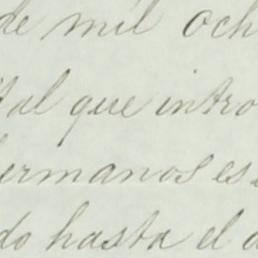 de mil och
tal que intro
ermanos es
do hasta el d